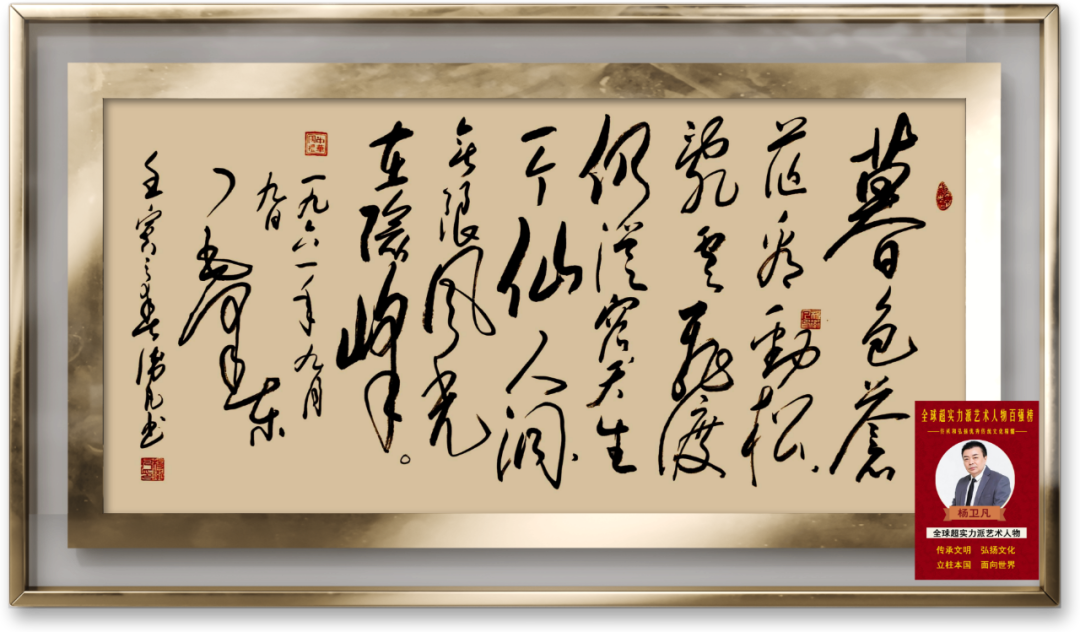 暮色蒼
茫看勁松、
亂雲飛渡
仍從容天生
一个仙人洞、
無限風光
在險峰。
一九六一年九月
九日
毛澤東
壬寅之春衛凡书
全球超实力派艺术人物百强榜
杨卫凡
全球超实力派艺术人物
传承文明 弘扬文化
立柱本国 面向世界